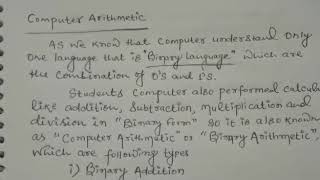 Computer Arithmetic
As we know that computer understand only
one language that is "Binary language" which are
the combination of 0's and 1's.
Students computer also performed calcul
like addition, Subtraction, multiplication and
division in "Binary form" so it is also known
as "Computer Arithmetic" or "Binary Arithmetic",
which are following types
i) Binary Addition